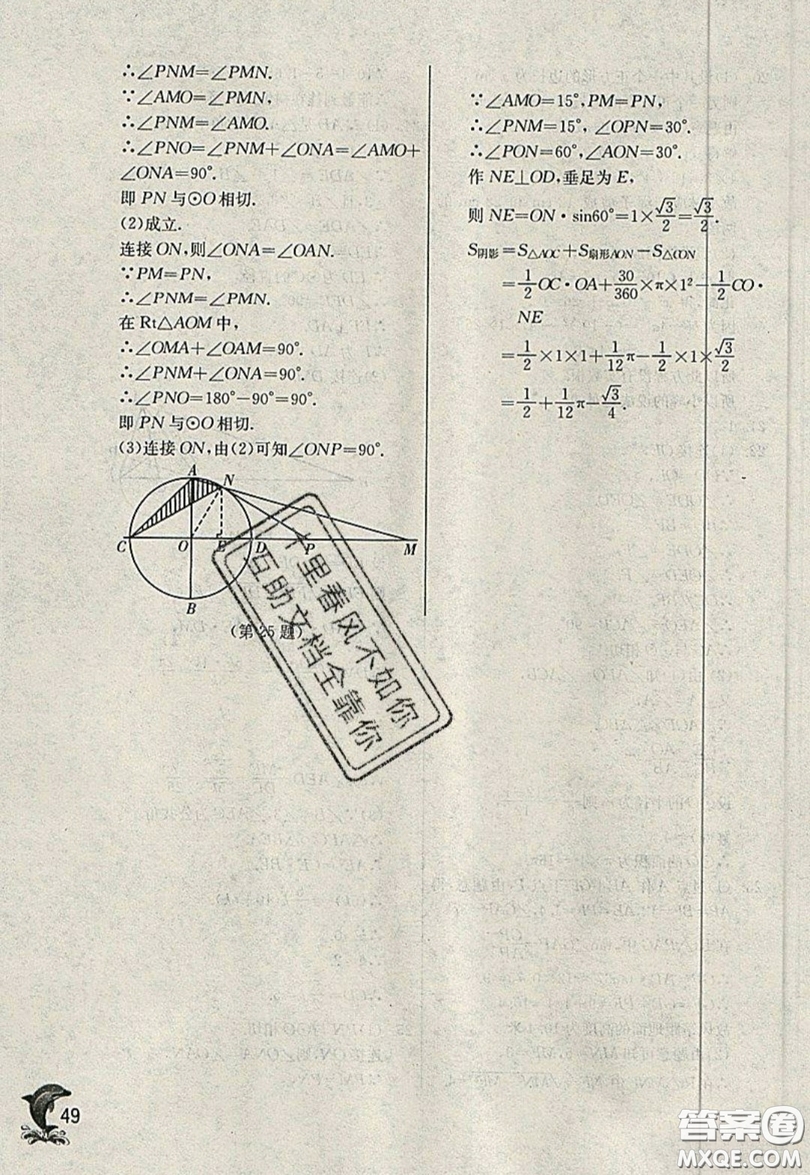 ∴∠PNM=∠PMN.
∵∠AMO=∠PMN,
∴∠PNM=∠AMO.
∴∠PNO=∠PNM+∠ONA=∠AMO+
∠ONA=90°.
即 PN 与⊙O 相切.
(2)成立.
连接 ON,则∠ONA=∠OAN.
∵PM=PN,
∴∠PNM=∠PMN.
在 Rt△AOM 中,
∴∠OMA+∠OAM=90°.
∴∠PNM+∠ONA=90°.
∴∠PNO=180°-90°=90°.
即 PN 与⊙O 相切.
(3)连接 ON,由(2)可知∠ONP=90°.
A
N
C
O
E
D
P
M
B
(第 25 题)
∵∠AMO=15°,PM=PN,
∴∠PNM=15°,∠OPN=30°.
∴∠PON=60°,∠AON=30°.
作 NE⊥OD,垂足为 E,
则 NE=ON·sin60°=1×√3/2=√3/2.
S阴影=S△AOC+S扇形AON-S△CON
=1/2OC·OA+30/360×π×1²-1/2CO·
NE
=1/2×1×1+1/12π-1/2×1×√3/2
=1/2+1/12π-√3/4.
十里春风不如你
互助文档全靠你
49
答案圈
MXQE.COM